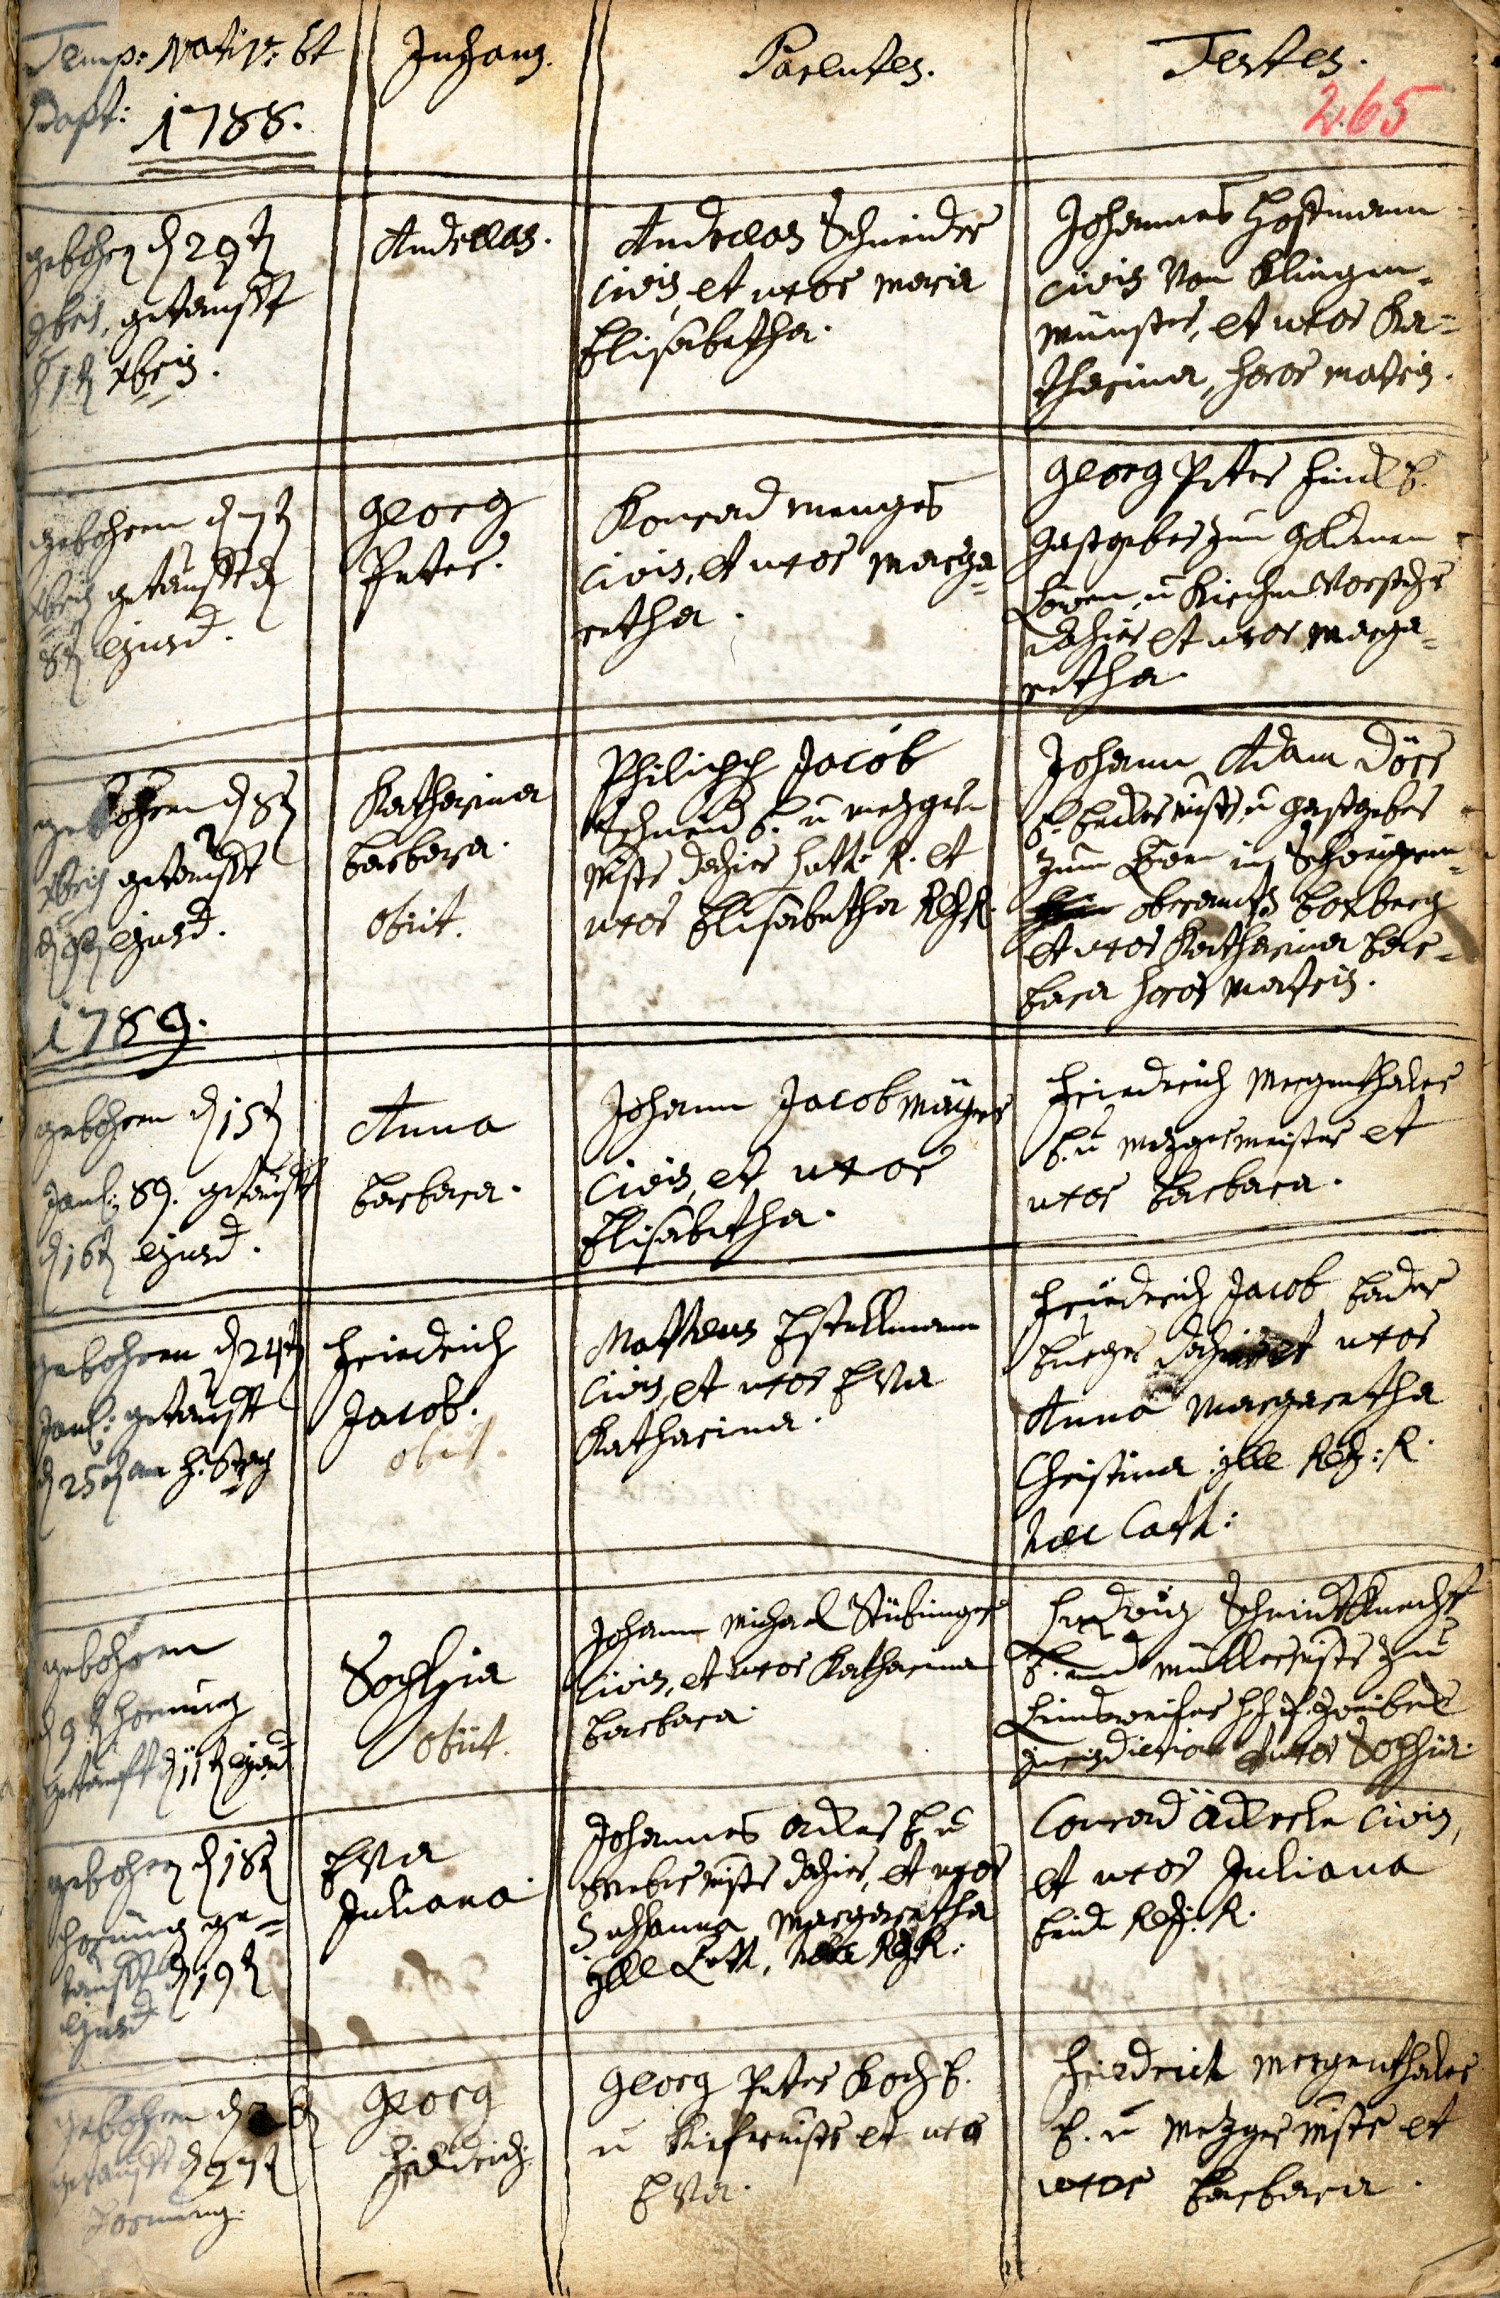 Temp: Nativ: et
Bapt: 1788.
Infans.
Parentes.
Testes.
265
gebohren d 29t
9bris, getaufft
d 1t xbris.
Andreas.
Andreas Schneider
civis et uxor Maria
Elisabetha.
Johannes Hoffmann
civis von Klingen-
münster, et uxor Ka-
tharina, soror matris.
gebohren d 7t
xbris getaufft d
8t ejusd.
Georg
Peter.
Konrad Menges
civis, et uxor Marga-
retha.
Georg Peter Finck B.
Gastgeber zum goldenen
Löwen, u Kirchen Vorsteher
dahier et uxor Marga-
retha.
gebohren d 8t
xbris getaufft
d 9t ejusd.
Katharina
Barbara.
obiit.
Philipp Jacob
Schneid B. u Metzger
mstr dahier luth: R. et
uxor Elisabetha Ref. R.
Johann Adam Dörr
B. Becker mstr, u Gastgeber
zum in
oberamts Boxberg
et uxor Katharina Bar-
bara soror matris.
1789.
gebohren d 15t
Jan: 89. getaufft
d 16t ejusd.
Anna
Barbara.
Johann Jacob Mäyer
civis, et uxor
Elisabetha.
Friedrich Mergenthaler
B. u Metzgermeister et
uxor Barbara.
gebohren d 24t
Jan: getaufft
d 25t am H. Stag
Friedrich
Jacob.
obiit.
Mattheus Estellmann
civis, et uxor Eva
Katharina.
Friedrich Jacob Bader
Burger dahier et uxor
Anna Margaretha
Christina ille Ref: R.
haec Cath:
gebohren
d 9t Hornung
getaufft d 11t ejusd
Sophia
obiit.
Johann Michael Stübinger
civis, et uxor Katharina
Barbara.
Ludwig Schmidtknecht
B. und Müllermstr zu
jurisdiction et uxor Sophia.
gebohren d 18t
Hornung ge-
taufft d 19t
ejusd
Eva
Juliana
Johannes Acker B u
Weber mstr dahier, et uxor
Susanna Margaretha
ille Luth, haec Ref R.
Conrad Äckerle civis,
et uxor Juliana
beide Ref: R.
gebohren d
getaufft d 27t
Hornung.
Georg
Friedrich.
Georg Peter Koch B.
u Kiefermstr et uxor
Eva.
Friedrich Mergenthaler
B. u Metzger mstr et
uxor Barbara.